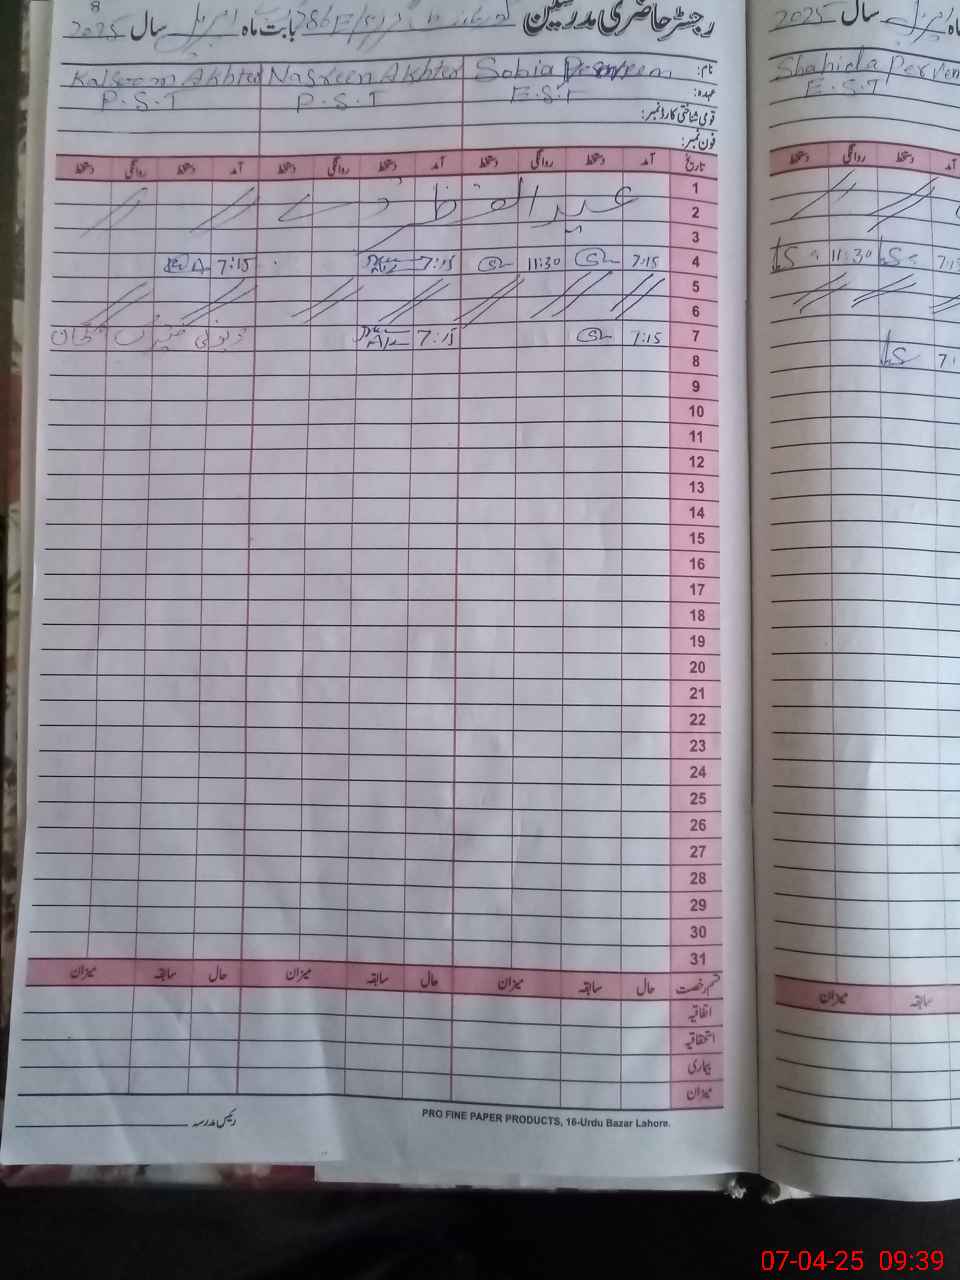 8
رجسٹر حاضری مدرسین 286E/B بابت ماہ اپریل سال 2025
نام: Sobia Perveen Nasreen Akhter Kalsoom Akhter
عہدہ: E.S.T P.S.T P.S.T
قومی شناختی کارڈ نمبر:
فون نمبر:
تاریخ آمد دستخط روانگی دستخط آمد دستخط روانگی دستخط آمد دستخط روانگی دستخط
1
2 عید الفطر
3
4 7:15 11:30 7:15 7:15
5
6
7 7:15 7:15 ڈیوٹی امتحان
8
9
10
11
12
13
14
15
16
17
18
19
20
21
22
23
24
25
26
27
28
29
30
31
قسم رخصت حال سابقہ میزان حال سابقہ میزان حال سابقہ میزان
اتفاقیہ
استحقاقیہ
بیماری
میزان
رئیس مدرسہ
PRO FINE PAPER PRODUCTS, 16-Urdu Bazar Lahore.
ماہ اپریل سال 2025
Shahida Perveen
E.S.T
آمد دستخط روانگی دستخط
7:15 11:30
سابقہ میزان
07-04-25 09:39